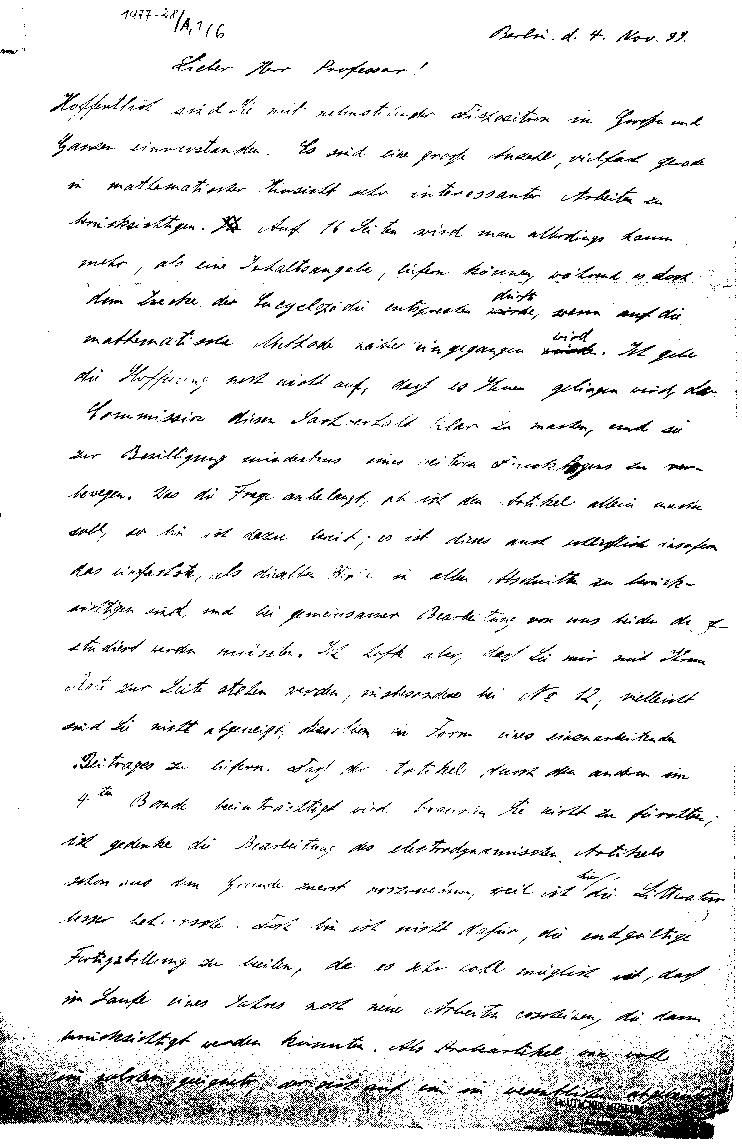 1977-28/A,1/6
Berlin. d. 4. Nov. 99.
Lieber Herr Professor!
Hoffentlich sind Sie mit nebenstehender Disposition im Großen und
Ganzen einverstanden. Es sind eine große Anzahl, vielfach gerade
in mathematischer Hinsicht sehr interessanter Arbeiten zu
berücksichtigen. Auf 16 Seiten wird man allerdings kaum
mehr, als eine Inhaltsangabe, liefern können, während es doch
dem Zwecke der Encyclopädie entsprechen dürfte, wenn auf die
mathematische Methode näher eingegangen wird. Ich gebe
die Hoffnung noch nicht auf, daß es Ihnen gelingen wird, der
Commission diesen Sachverhalt klar zu machen, und sie
zur Bewilligung mindestens eines weiteren Druckbogens zu
bewegen. Was die Frage anbelangt, ob ich den Artikel allein machen
soll, so bin ich dazu bereit; es ist dieses auch insofern
das einfachste, als dieselben in allen Abschnitten zu berück-
sichtigen sind, und bei gemeinsamer Bearbeitung von uns beiden
studiert werden müssten. Ich hoffe aber, daß Sie mir mit Ihrem
Rate zur Seite stehen werden, insbesondere bei No 12; vielleicht
sind Sie nicht abgeneigt, dieselben in Form eines einzuarbeitenden
Beitrages zu liefern. Daß der Artikel durch den anderen im
4ten Bande beeinträchtigt wird, brauchen Sie nicht zu fürchten;
ich gedenke die Bearbeitung des electrodynamischen Artikels
schon aus dem Grunde zuerst vorzunehmen, weil ich hier die Litteratur
besser beherrsche. Doch bin ich nicht dafür, die endgültige
Fertigstellung zu beeilen, da es sehr wohl möglich ist, daß
im Laufe eines Jahres noch neue Arbeiten erscheinen, die dann
berücksichtigt werden könnten. Als Probeartikel